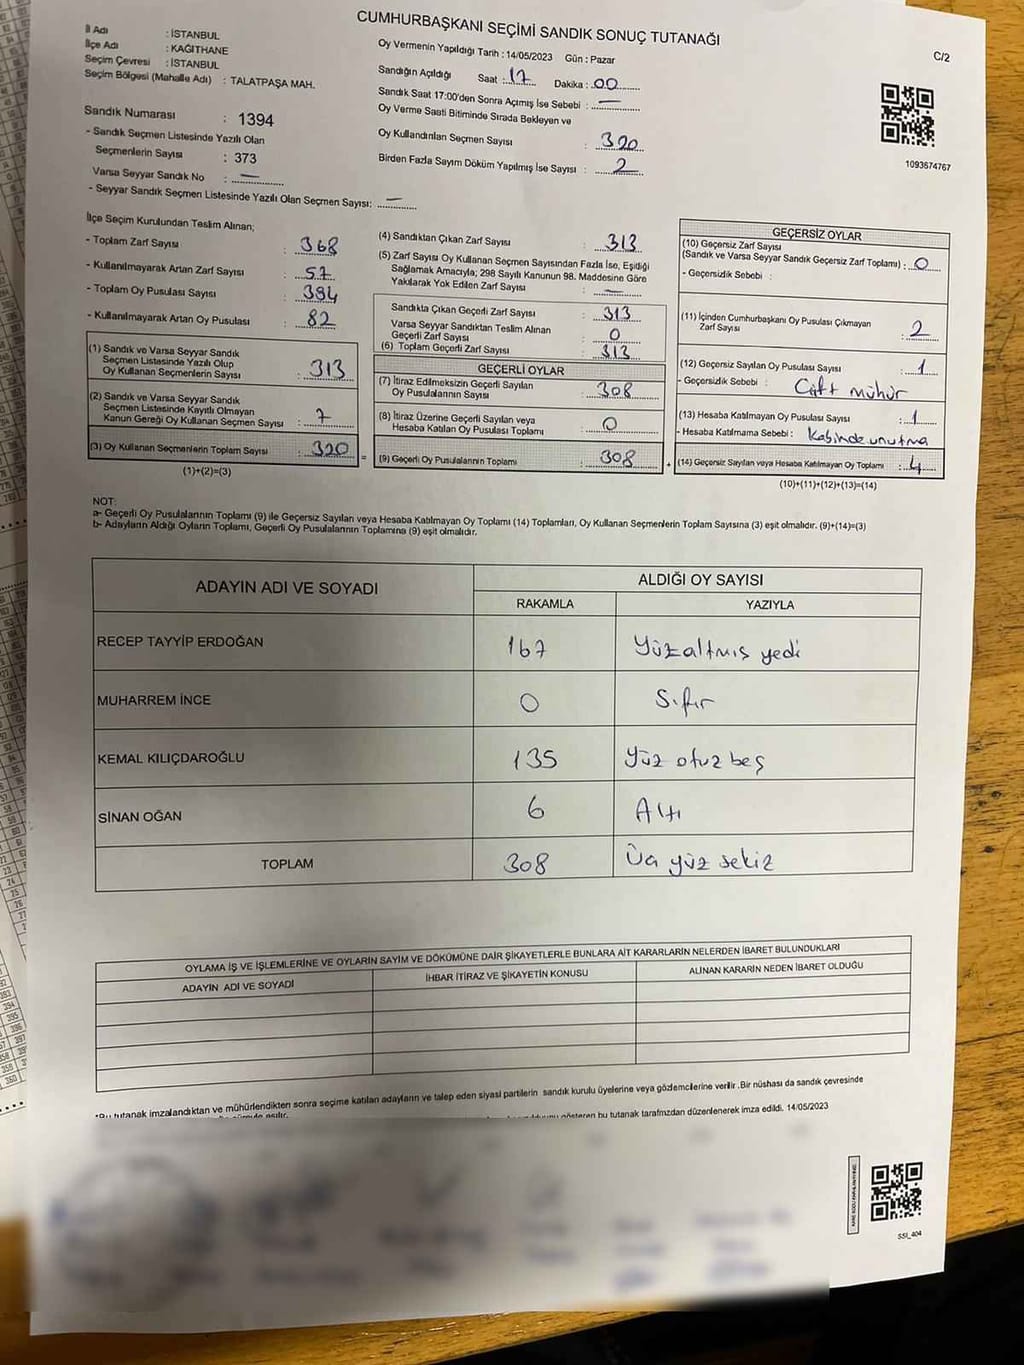 CUMHURBAŞKANI SEÇİMİ SANDIK SONUÇ TUTANAĞI
C/2
İl Adı : İSTANBUL
İlçe Adı : KAĞITHANE
Seçim Çevresi : İSTANBUL
Seçim Bölgesi (Mahalle Adı) : TALATPAŞA MAH.
Sandık Numarası : 1394
- Sandık Seçmen Listesinde Yazılı Olan
Seçmenlerin Sayısı : 373
Varsa Seyyar Sandık No : —
- Seyyar Sandık Seçmen Listesinde Yazılı Olan Seçmen Sayısı: —
Oy Vermenin Yapıldığı Tarih : 14/05/2023 Gün : Pazar
Sandığın Açıldığı Saat : 17 Dakika : 00
Sandık Saat 17:00'den Sonra Açımış İse Sebebi : —
Oy Verme Saati Bitiminde Sırada Bekleyen ve
Oy Kullandırılan Seçmen Sayısı : 320
Birden Fazla Sayım Döküm Yapılmış İse Sayısı : 2
1093674767
İlçe Seçim Kurulundan Teslim Alınan;
- Toplam Zarf Sayısı : 368
- Kullanılmayarak Artan Zarf Sayısı : 57
- Toplam Oy Pusulası Sayısı : 394
- Kullanılmayarak Artan Oy Pusulası : 82
(1) Sandık ve Varsa Seyyar Sandık
Seçmen Listesinde Yazılı Olup
Oy Kullanan Seçmenlerin Sayısı : 313
(2) Sandık ve Varsa Seyyar Sandık
Seçmen Listesinde Kayıtlı Olmayan
Kanun Gereği Oy Kullanan Seçmen Sayısı : 7
(3) Oy Kullanan Seçmenlerin Toplam Sayısı : 320
(1)+(2)=(3)
(4) Sandıktan Çıkan Zarf Sayısı : 313
(5) Zarf Sayısı Oy Kullanan Seçmen Sayısından Fazla İse, Eşitliği
Sağlamak Amacıyla; 298 Sayılı Kanunun 98. Maddesine Göre
Yakılarak Yok Edilen Zarf Sayısı : —
Sandıkta Çıkan Geçerli Zarf Sayısı : 313
Varsa Seyyar Sandıktan Teslim Alınan
Geçerli Zarf Sayısı : 0
(6) Toplam Geçerli Zarf Sayısı : 313
GEÇERLİ OYLAR
(7) İtiraz Edilmeksizin Geçerli Sayılan
Oy Pusulalarının Sayısı : 308
(8) İtiraz Üzerine Geçerli Sayılan veya
Hesaba Katılan Oy Pusulası Toplamı : 0
(9) Geçerli Oy Pusulalarının Toplamı : 308
GEÇERSİZ OYLAR
(10) Geçersiz Zarf Sayısı
(Sandık ve Varsa Seyyar Sandık Geçersiz Zarf Toplamı) : 0
- Geçersizlik Sebebi :
(11) İçinden Cumhurbaşkanı Oy Pusulası Çıkmayan
Zarf Sayısı : 2
(12) Geçersiz Sayılan Oy Pusulası Sayısı : 1
- Geçersizlik Sebebi : Çift mühür
(13) Hesaba Katılmayan Oy Pusulası Sayısı : 1
- Hesaba Katılmama Sebebi : Kabinde unutma
(14) Geçersiz Sayılan veya Hesaba Katılmayan Oy Toplamı : 4
(10)+(11)+(12)+(13)=(14)
NOT:
a- Geçerli Oy Pusulalarının Toplamı (9) ile Geçersiz Sayılan veya Hesaba Katılmayan Oy Toplamı (14) Toplamları, Oy Kullanan Seçmenlerin Toplam Sayısına (3) eşit olmalıdır. (9)+(14)=(3)
b- Adayların Aldığı Oyların Toplamı, Geçerli Oy Pusulalarının Toplamına (9) eşit olmalıdır.
ADAYIN ADI VE SOYADI ALDIĞI OY SAYISI
RAKAMLA YAZIYLA
RECEP TAYYİP ERDOĞAN 167 Yüzaltmış yedi
MUHARREM İNCE 0 Sıfır
KEMAL KILIÇDAROĞLU 135 Yüz otuz beş
SİNAN OĞAN 6 Altı
TOPLAM 308 Üç yüz sekiz
OYLAMA İŞ VE İŞLEMLERİNE VE OYLARIN SAYIM VE DÖKÜMÜNE DAİR ŞİKAYETLERLE BUNLARA AİT KARARLARIN NELERDEN İBARET BULUNDUKLARI
ADAYIN ADI VE SOYADI İHBAR İTİRAZ VE ŞİKAYETİN KONUSU ALINAN KARARIN NEDEN İBARET OLDUĞU
*Bu tutanak imzalandıktan ve mühürlendikten sonra seçime katılan adayların ve talep eden siyasi partilerin sandık kurulu üyelerine veya gözlemcilerine verilir .Bir nüshası da sandık çevresinde
gösteren bu tutanak tarafımızdan düzenlenerek imza edildi. 14/05/2023
SSI_404